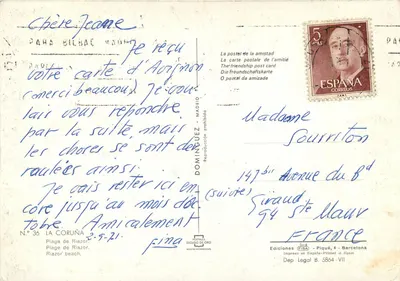 Chère Jeanne
Je reçu
votre carte d'Avignon
(merci beaucoup) Je vou-
lais vous répondre
par la suite, mais
les choses se sont dé-
roulées ainsi.
Je vais rester ici en
core jusqu'au mois d'oc
tobre Amicalement
2-9-71. Fina
N.° 36 LA CORUÑA
Playa de Riazor.
Plage de Riazor.
Riazor beach.
DOMINGUEZ - MADRID
La postal de la amistad
La carte postale de l'amitié
The friendship post card
Die Freundschaftskarte
O postal da amizade
5
PTAS
ESPAÑA
CORREOS
Madame
Sourriton
147bis Avenue du Bd
(suite) Giraud
94 Ste Maur
France
Ediciones Piqué, - Barcelona
Dep. Legal B. 5864-VII